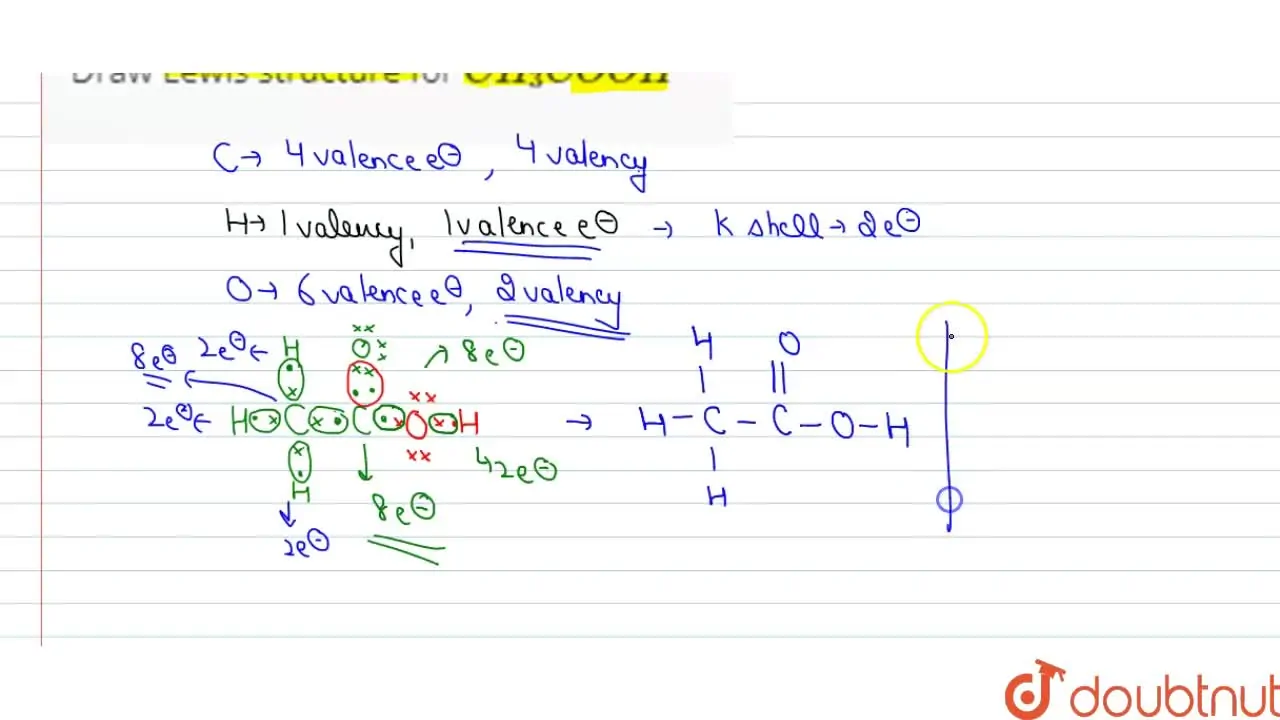 Draw Lewis structure for CH3COOH
C→ 4 valence e⊖, 4 valency
H→ 1 valency, 1 valence e⊖ → K shell → 2e⊖
O→ 6 valence e⊖, 2 valency
xx
8e⊖ 2e⊖← H O xx → 8e⊖ H O
xx
2e⊖← H C C O H → H – C – C – O – H
xx
↳2e⊖
H 8e⊖ H
2e⊖
doubtnut